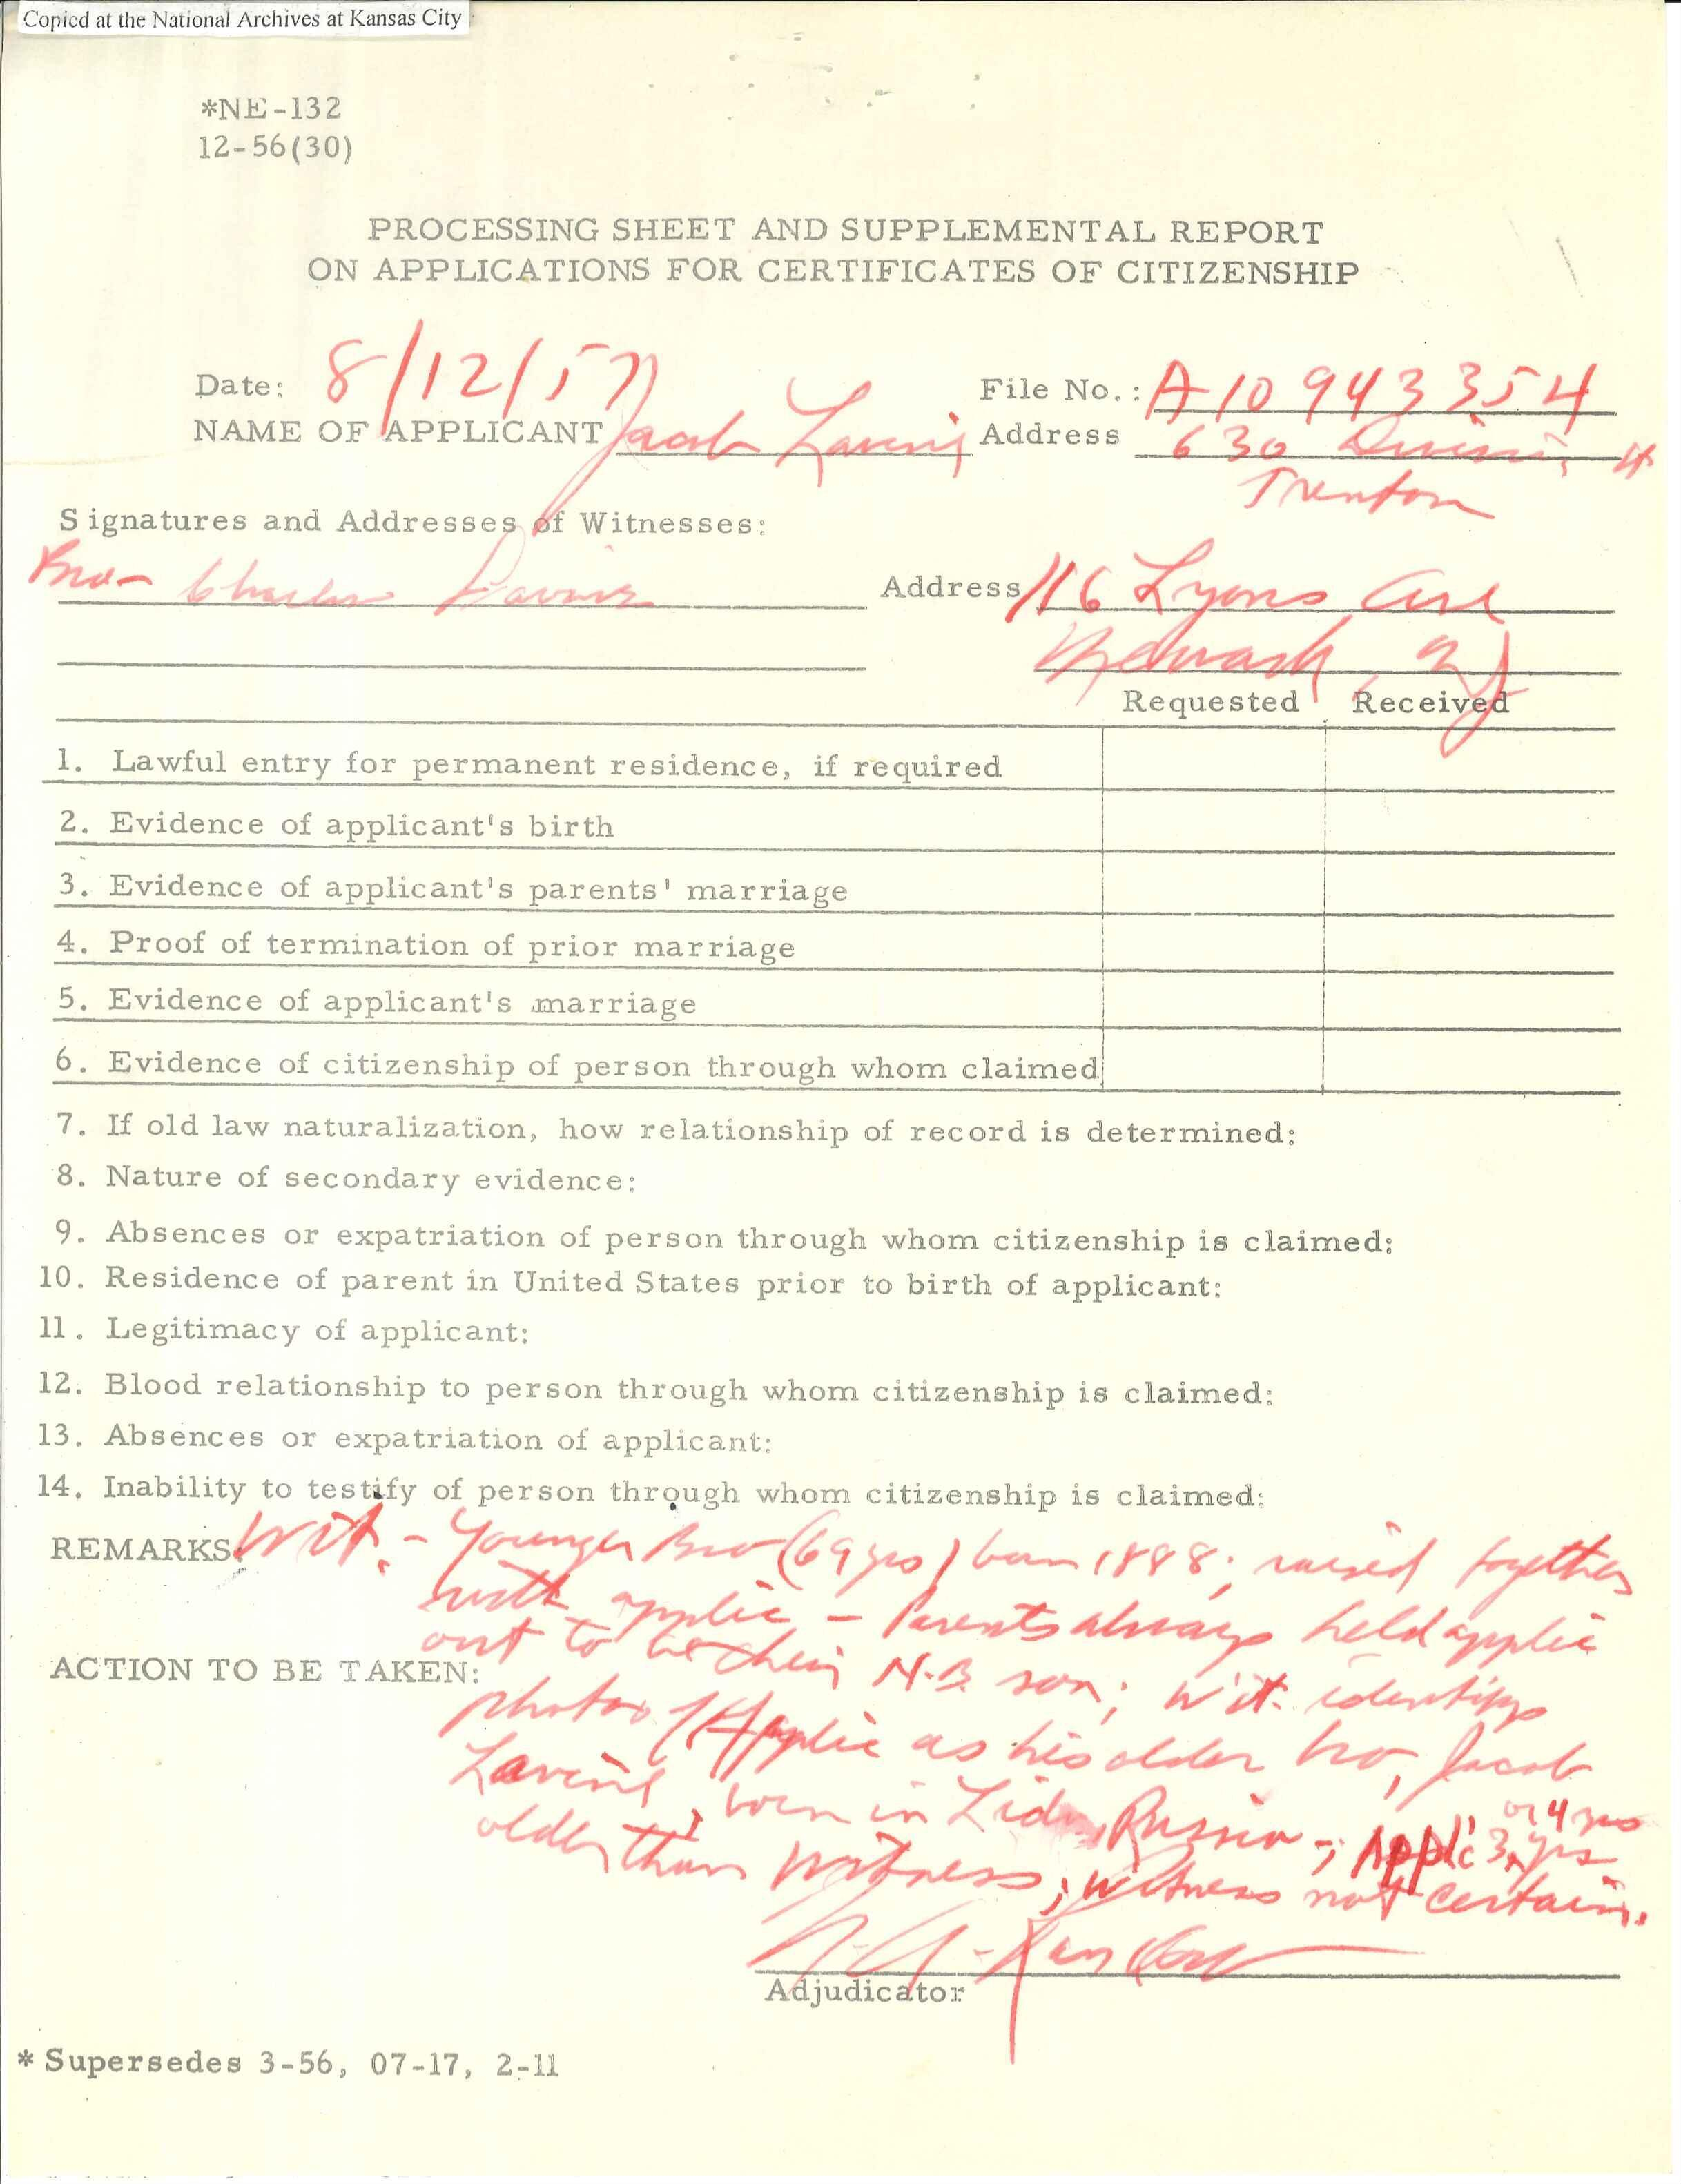 Copied at the National Archives at Kansas City
*NE-132
12-56(30)
PROCESSING SHEET AND SUPPLEMENTAL REPORT
ON APPLICATIONS FOR CERTIFICATES OF CITIZENSHIP
Date: 8/12/57 File No.: A10 943 354
NAME OF APPLICANT Jacob Lavine Address 630 Division St
Trenton
Signatures and Addresses of Witnesses:
Bro- Charles Lavine Address 116 Lyons Ave
Newark NJ
Requested Received
1. Lawful entry for permanent residence, if required
2. Evidence of applicant's birth
3. Evidence of applicant's parents' marriage
4. Proof of termination of prior marriage
5. Evidence of applicant's marriage
6. Evidence of citizenship of person through whom claimed
7. If old law naturalization, how relationship of record is determined:
8. Nature of secondary evidence:
9. Absences or expatriation of person through whom citizenship is claimed:
10. Residence of parent in United States prior to birth of applicant:
11. Legitimacy of applicant:
12. Blood relationship to person through whom citizenship is claimed:
13. Absences or expatriation of applicant:
14. Inability to testify of person through whom citizenship is claimed:
REMARKS: Wit. - Younger Bro (69 yrs) born 1888; raised together
with applic - Parents always held applic
out to be their N.B. son; Wit. identifys
ACTION TO BE TAKEN:
photo of Applic as his older bro, Jacob
Lavine, born in Lida, Russia -; Applic 3 or 4 yrs
older than witness; witness not certain.
Adjudicator
* Supersedes 3-56, 07-17, 2-11